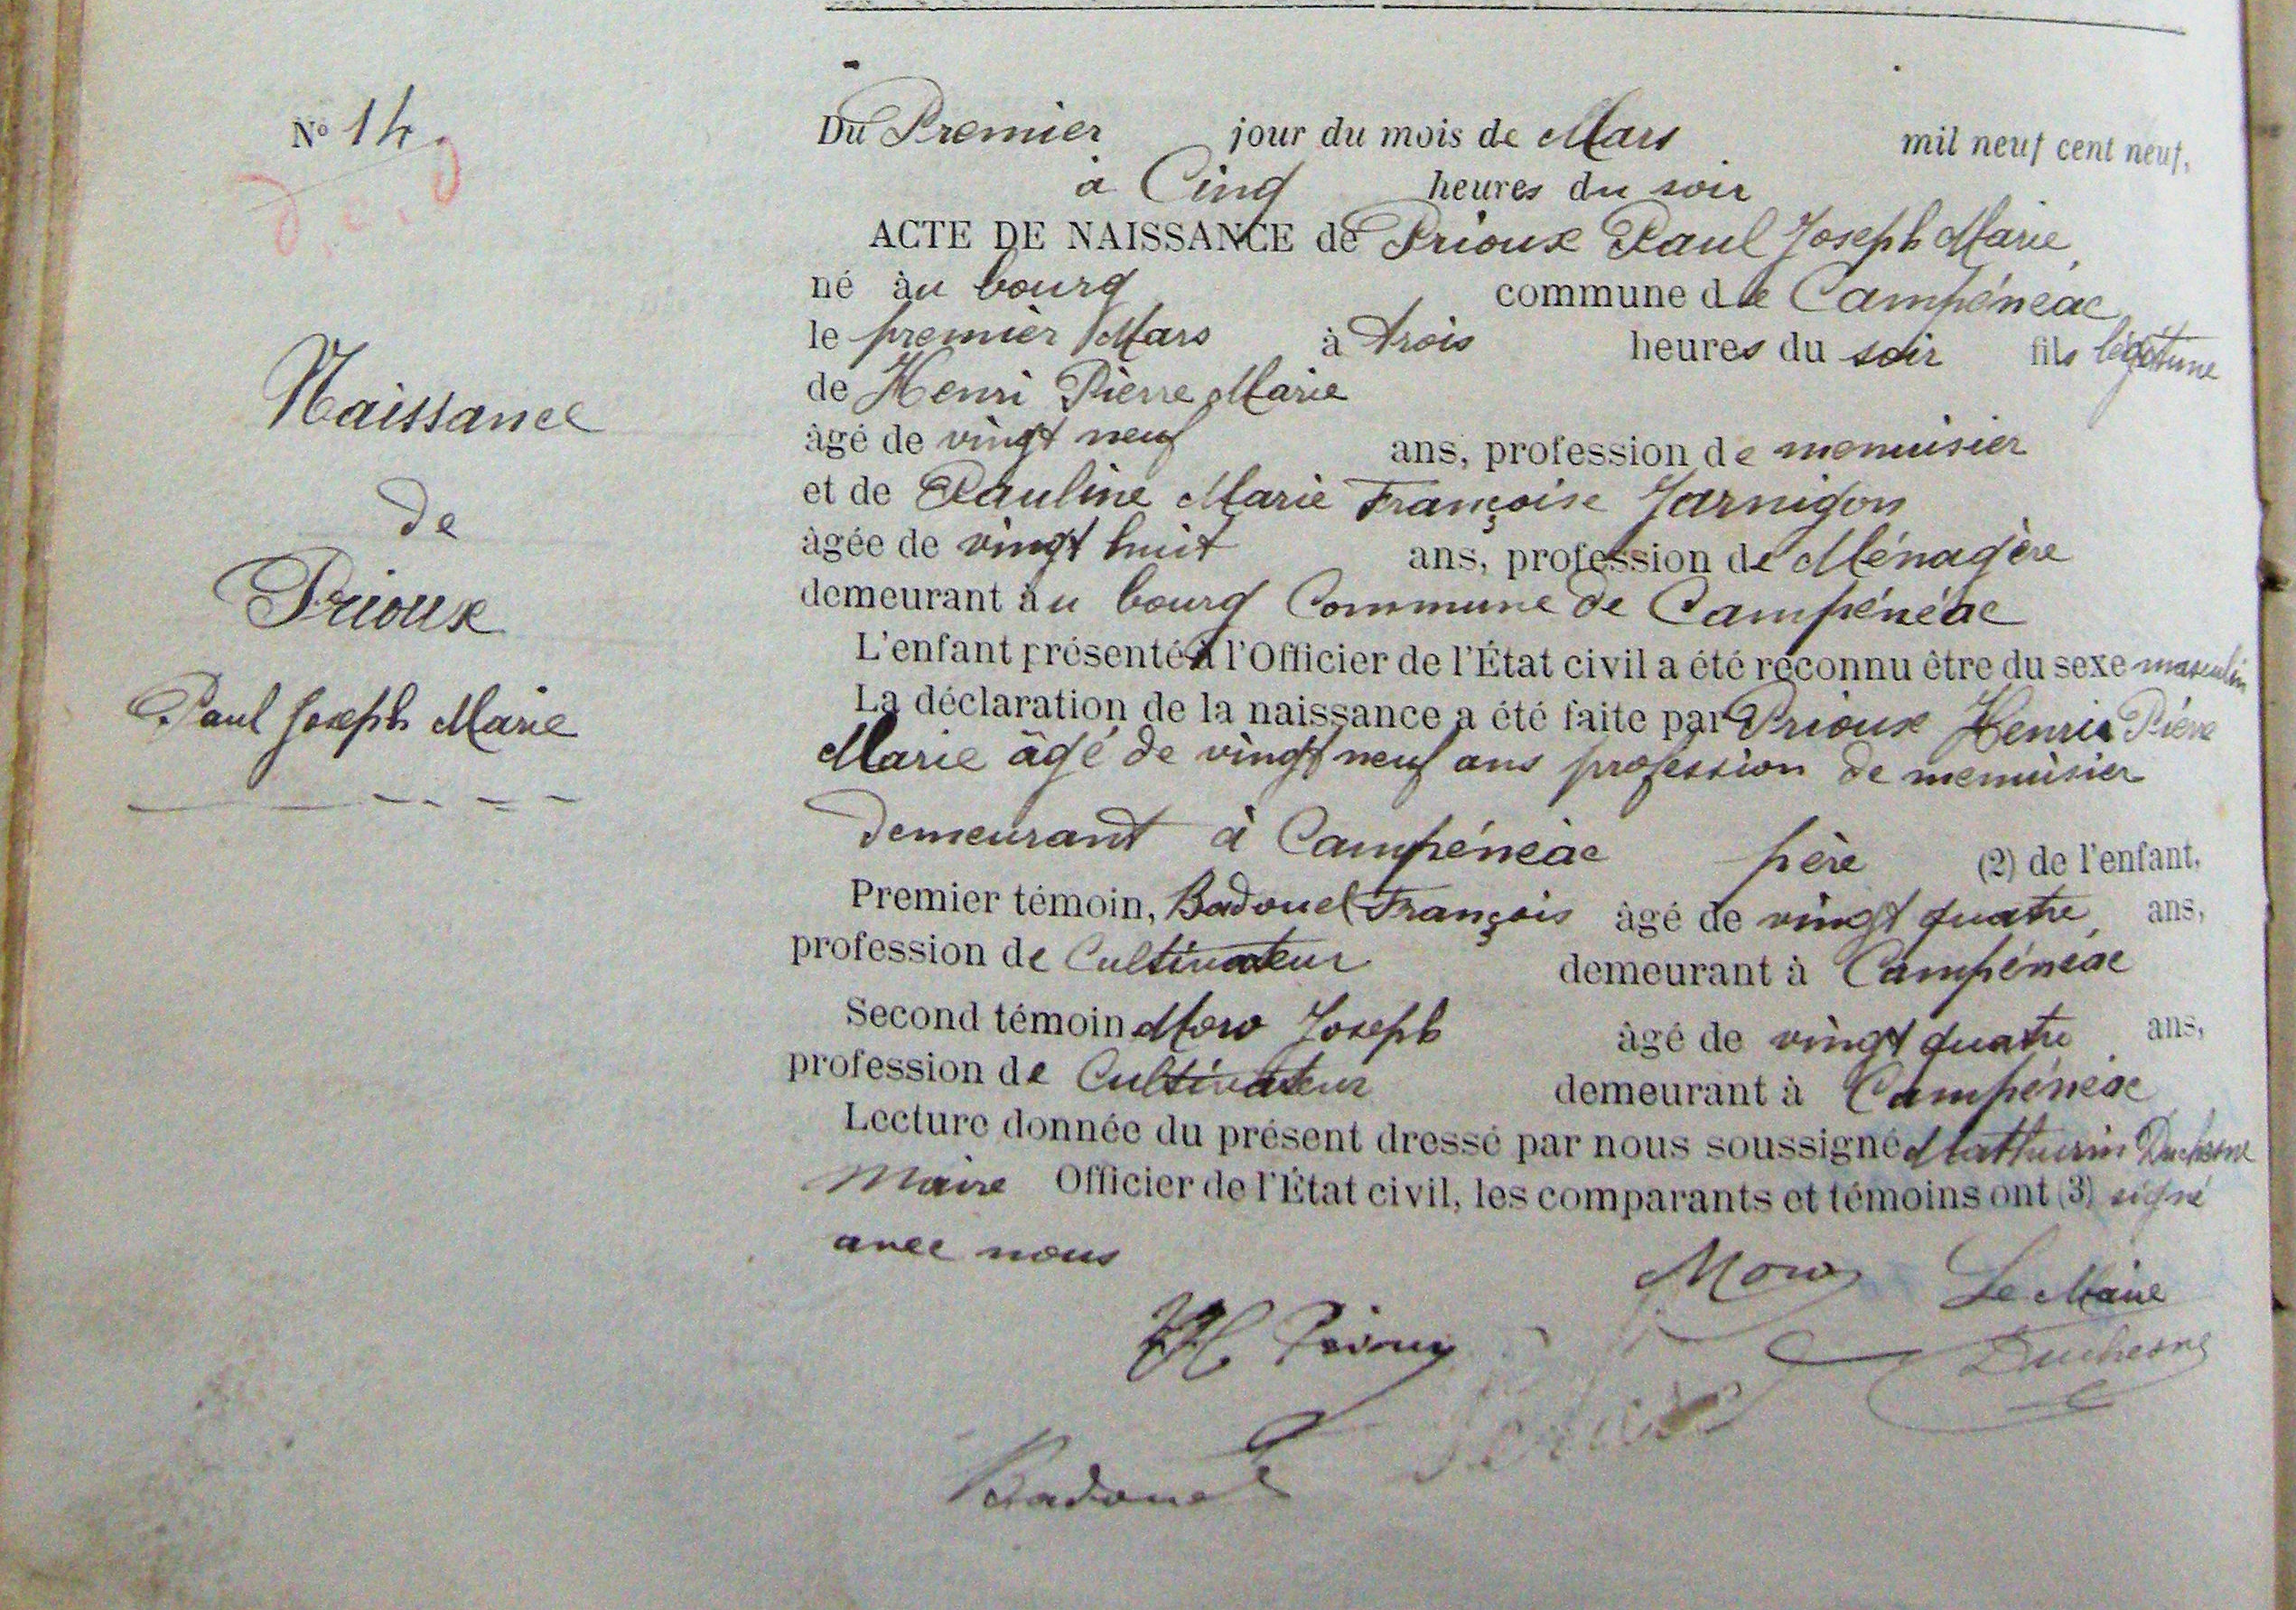 N° 14.
Naissance
de
Prioux
Paul Joseph Marie
Du Premier jour du mois de Mars mil neuf cent neuf,
à Cinq heures du soir
ACTE DE NAISSANCE de Prioux Paul Joseph Marie,
né àu bourg commune de Campénéac
le premier Mars à trois heures du soir fils légitime
de Henri Pierre Marie
âgé de vingt neuf ans, profession de menuisier
et de Pauline Marie Françoise Jarnigon
âgée de vingt huit ans, profession de Ménagère
demeurant àu bourg Commune de Campénéac
L'enfant présenté à l'Officier de l'État civil a été reconnu être du sexe masculin
La déclaration de la naissance a été faite par Prioux Henri Pierre
Marie âgé de vingt neuf ans profession de menuisier
demeurant à Campénéac père (2) de l'enfant,
Premier témoin, Badouel François âgé de vingt quatre ans,
profession de Cultivateur demeurant à Campénéac
Second témoin Moro Joseph âgé de vingt quatre ans,
profession de Cultivateur demeurant à Campénéac
Lecture donnée du présent dressé par nous soussigné Mathurin Duchesne
Maire Officier de l'État civil, les comparants et témoins ont (3) signé
avec nous
Moro Le Maire
H Prioux Duchesne
Badouel